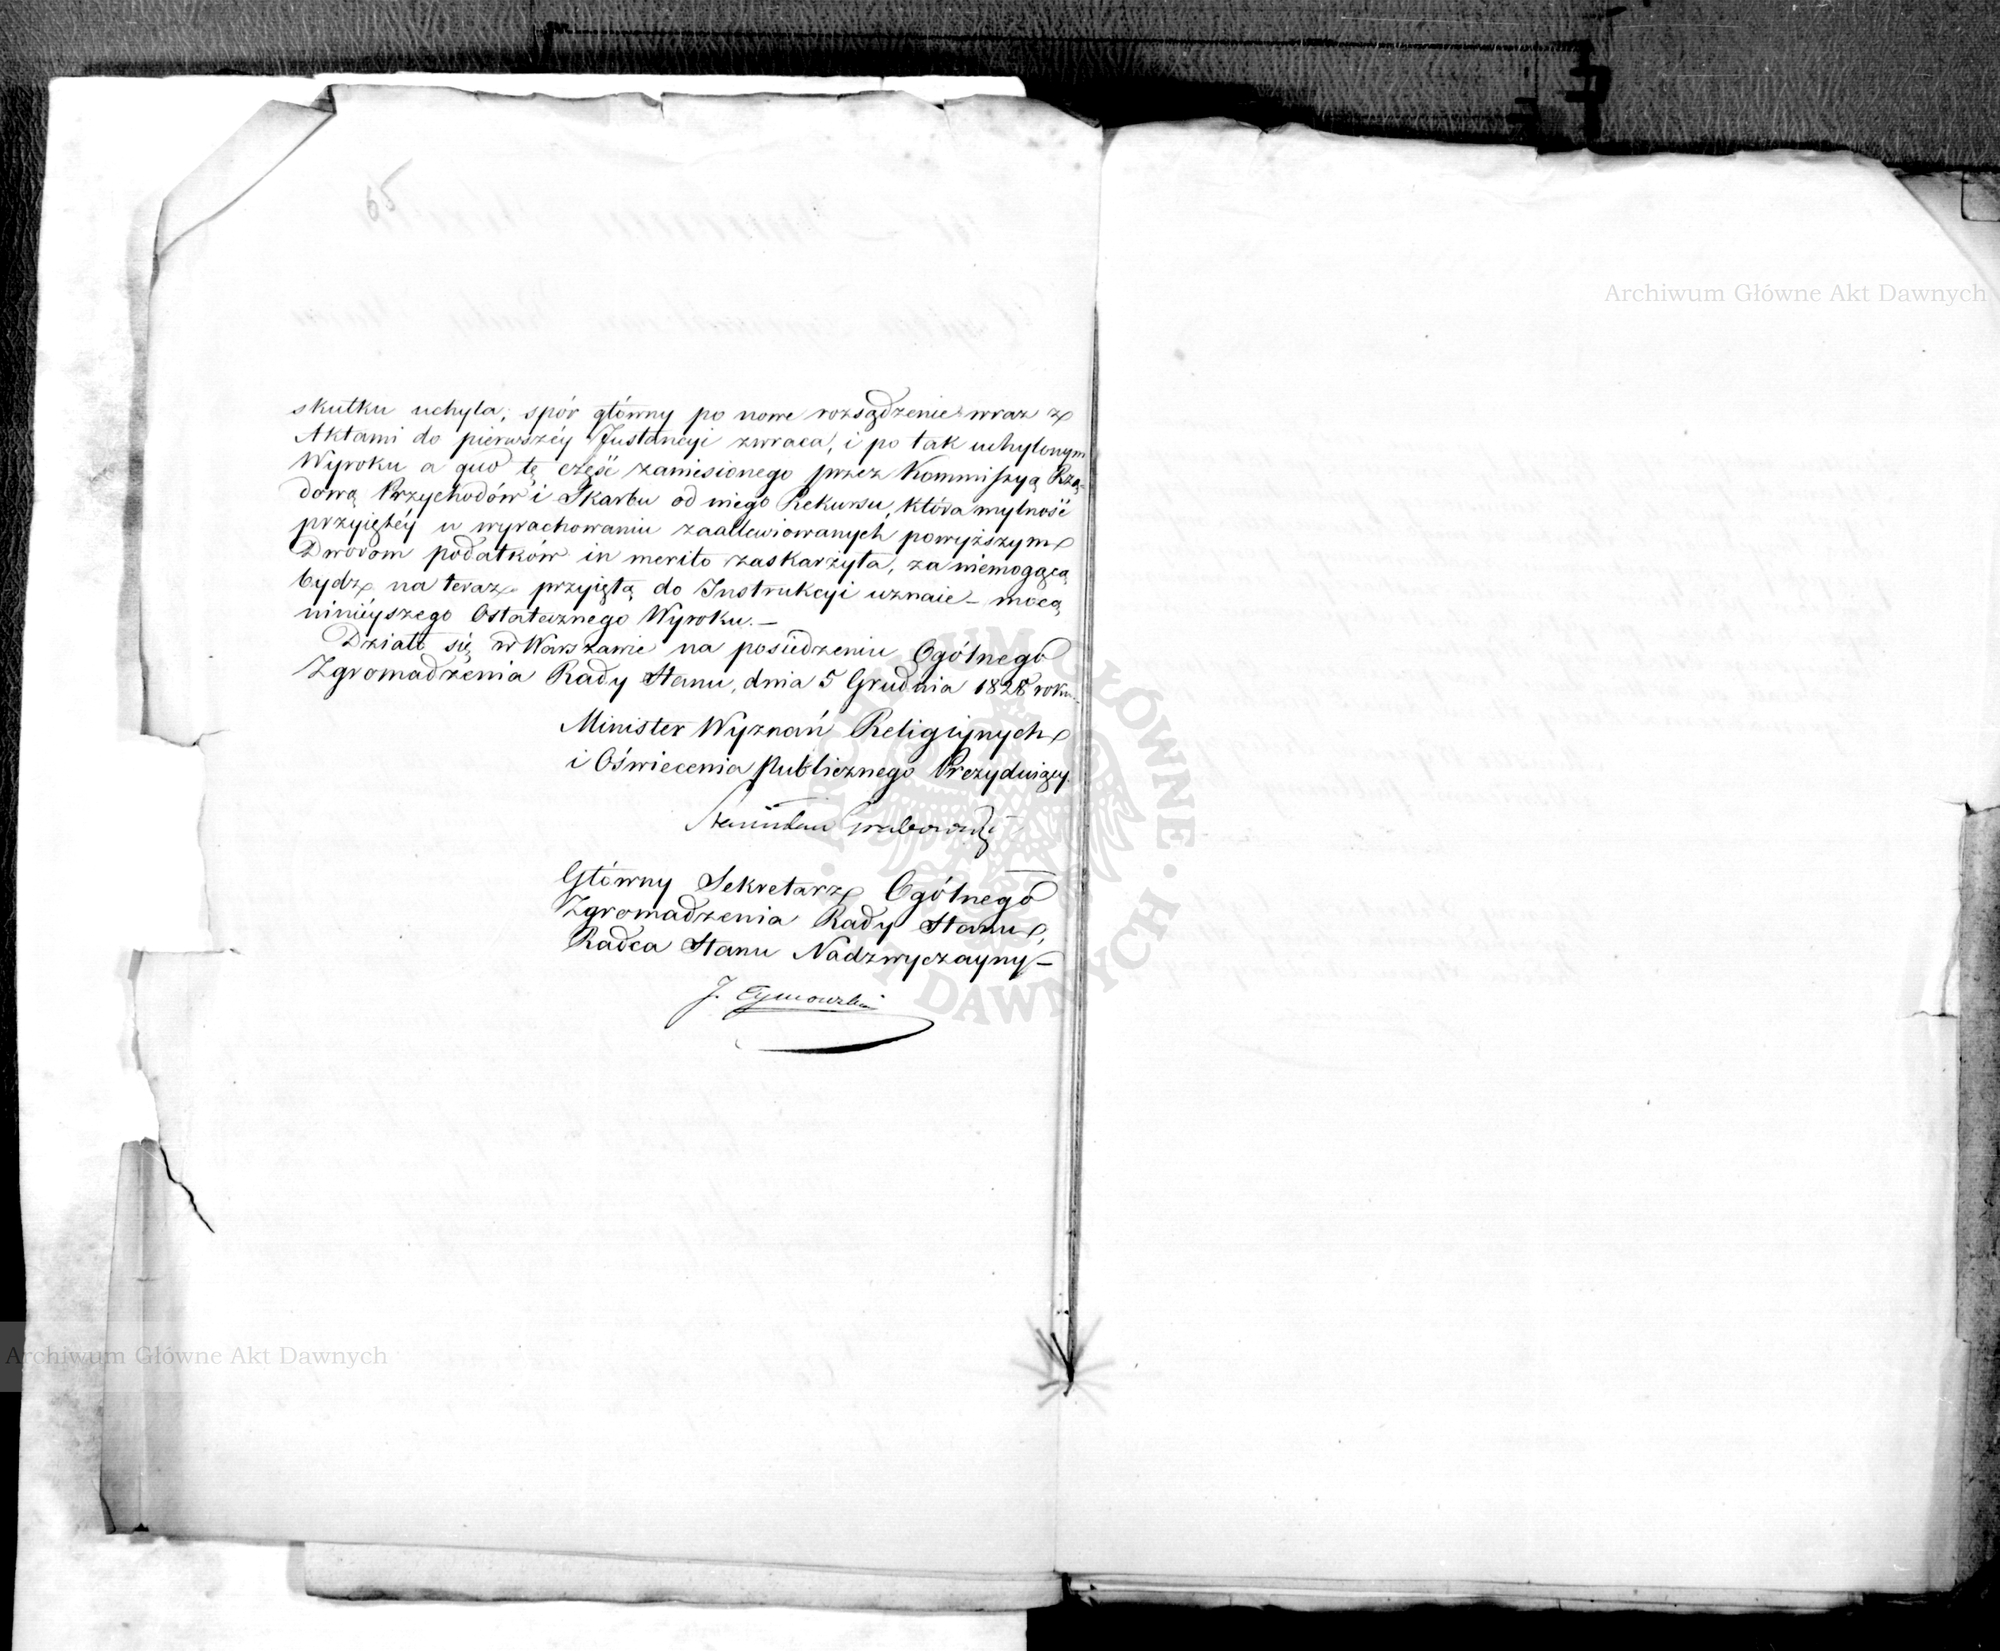 65
skutku uchyla; spór główny po nowe rozsądzenie wraz z
Aktami do pierwszéy Instancyi zwraca, i po tak uchylonym
Wyroku a quo tę część zaniesionego przez Kommissyą Rzą-
dową Przychodów i Skarbu od niego Rekursu, która mylność
przyiętéy w wyrachowaniu zaallewiowanych powyższym
Dworom podatków in merito zaskarżyła, za niemogącą
bydz na teraz przyiętą do Instrukcyi uznaie – mocą
ninieyszego Ostatecznego Wyroku. –
Działo się w Warszawie na posiedzeniu Ogólnego
Zgromadzenia Rady Stanu, dnia 5 Grudnia 1828 roku.
Minister Wyznań Religijnych
i Oświecenia Publicznego Prezyduiący.
Stanisław Grabowski
Główny Sekretarz Ogólnego
Zgromadzenia Rady Stanu,
Radca Stanu Nadzwyczayny –
J. Tymowski
Archiwum Główne Akt Dawnych
Archiwum Główne Akt Dawnych
ARCHIWUM GŁÓWNE AKT DAWNYCH